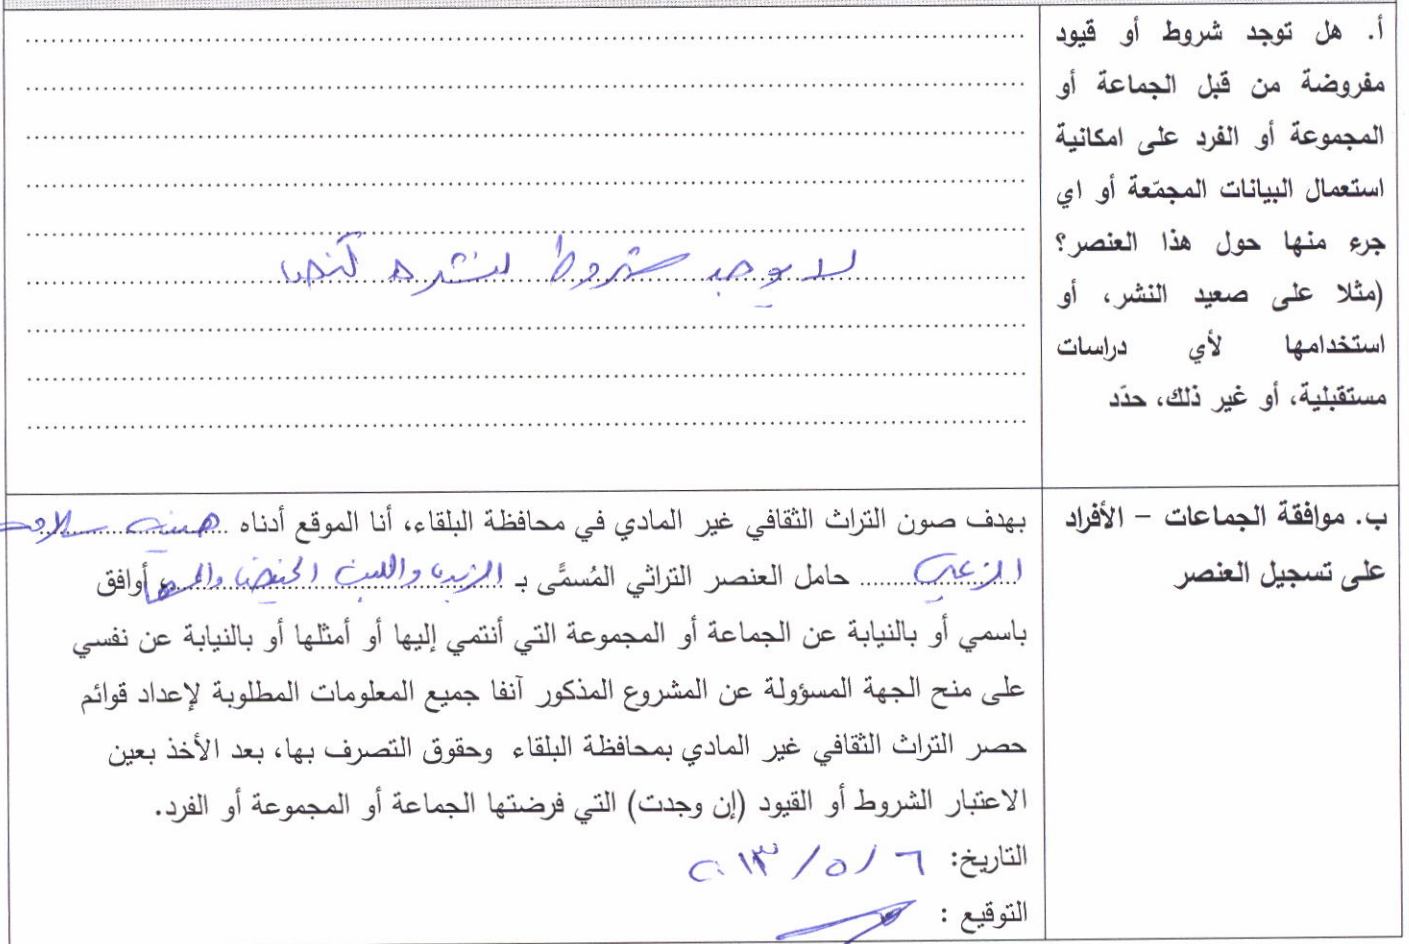 أ. هل توجد شروط أو قيود
مفروضة من قبل الجماعة أو
المجموعة أو الفرد على امكانية
استعمال البيانات المجمّعة أو اي
جرء منها حول هذا العنصر؟
(مثلا على صعيد النشر، أو
استخدامها لأي دراسات
مستقبلية، أو غير ذلك، حدّد
لا يوجد شروط لنشره كنص
ب. موافقة الجماعات - الأفراد
على تسجيل العنصر
بهدف صون التراث الثقافي غير المادي في محافظة البلقاء، أنا الموقع أدناه هيبة سلامة
الزعبي حامل العنصر التراثي المُسمًّى بـ الزبدة واللبن المخيض أوافق
باسمي أو بالنيابة عن الجماعة أو المجموعة التي أنتمي إليها أو أمثلها أو بالنيابة عن نفسي
على منح الجهة المسؤولة عن المشروع المذكور آنفا جميع المعلومات المطلوبة لإعداد قوائم
حصر التراث الثقافي غير المادي بمحافظة البلقاء وحقوق التصرف بها، بعد الأخذ بعين
الاعتبار الشروط أو القيود (إن وجدت) التي فرضتها الجماعة أو المجموعة أو الفرد.
التاريخ: ٦ / ٥ / ٢٠١٣
التوقيع :